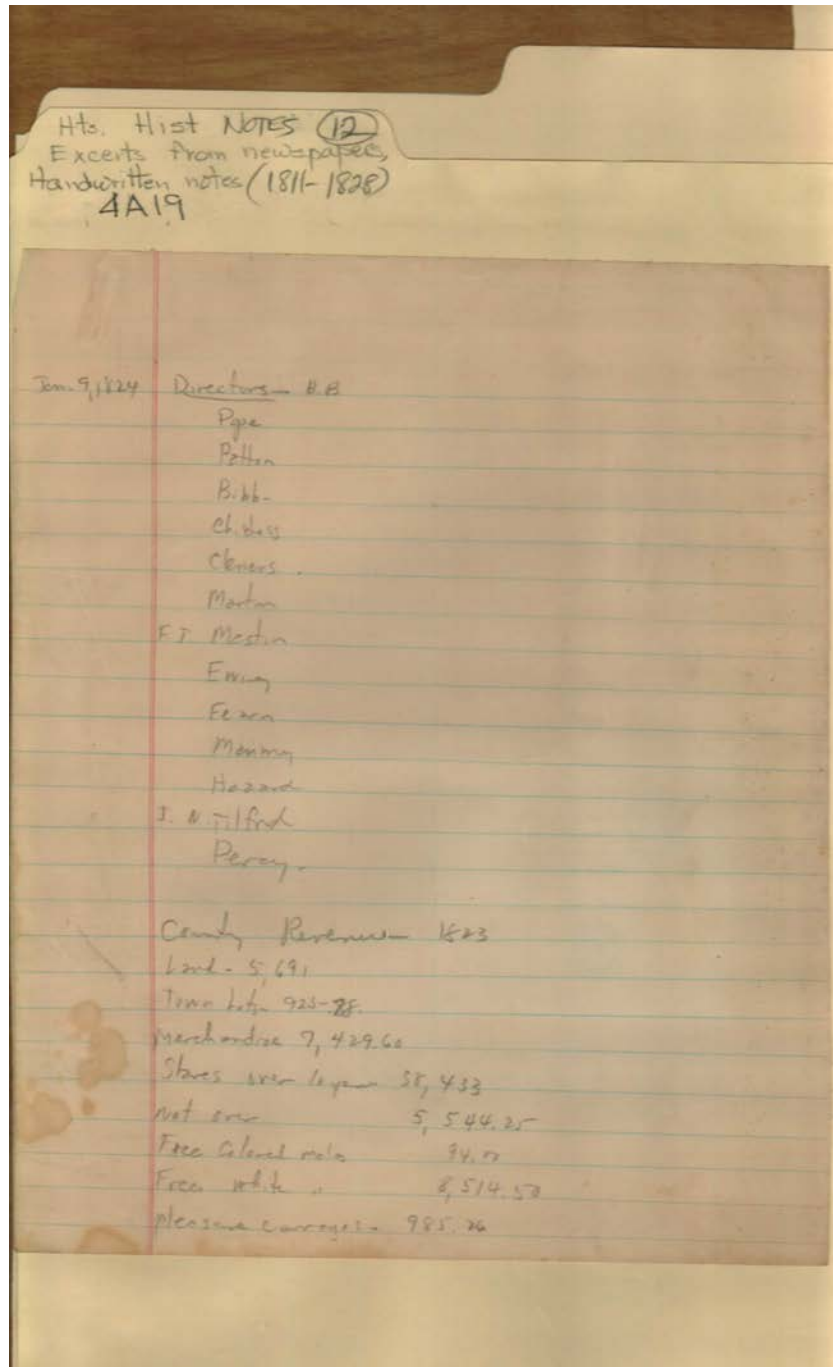 Hts. Hist NOTES (12)
Excerts from newspapers,
Handwritten notes (1811-1828)
4A19
Jan. 9, 1824 Directors - H.B
Pope
Patton
Bibb-
Childess
Clemens.
Martin
F T Mastin
Ewing
Fearn
Manning
Hazard
J. N. Tilford
Percy.
County Revenue 1823
Land - 5,691
Town Lots 925-
Merchandise 7,429.60
Slaves over 10 years 58,433
Not over 5,544.25
Free Colored males 94.00
Free white " 8,514.50
pleasure carrages - 985.26